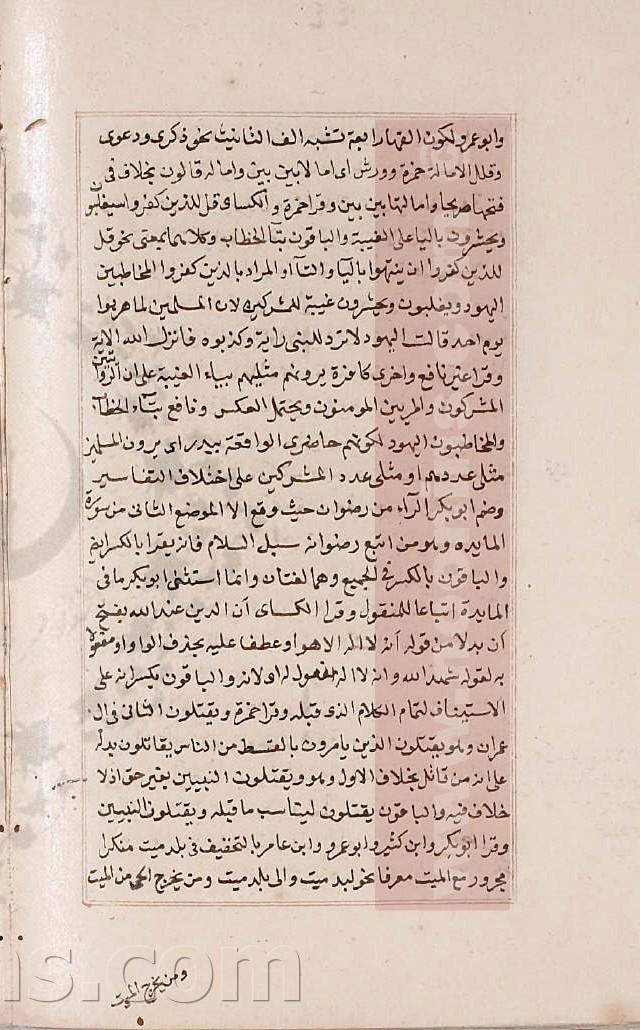 وابو عمرو لكون الفها رابعة تشبه الف التانيث نحو ذكرى ودعوى
وقلل الامالة حمزة وورش اى امالا بين بين وامالة قالون بخلاف فى
فتحها صريحا وامالتها بين بين وقرا حمزة والكساى قل للذين كفروا سيغلبون
ويحشرون باليا على الغيبة والباقون بتا الخطاب وكلاهما بمعنى نحو قل
للذين كفروا ان ينتهوا باليا والتا او المراد بالذين كفروا المخاطبين
اليهود ويغلبون ويحشرون غيبة للمشركين لان المسلمين لما هربوا
يوم احد قالت اليهود لا ترد للنبى راية وكذبوه فانزل الله الاية
وقرا غير نافع واخرى كافرة يرونهم مثليهم بياء الغيبة على ان الروا
المشركون والمربين المومنون ويحتمل العكس ونافع بتاء الخطاب
والمخاطبون اليهود لكونهم حاضرى الواقعة ببدر اى يرون المسلمين
مثلى عددهم او مثلى عدد المشركين على اختلاف التفاسير
وضم ابو بكر الراء من رضوان حيث وقع الا الموضع الثانى من سورة
المايده وهو من اتبع رضوانه سبل السلام فانه يقرا بالكسر ايض
والباقون بالكسر فى الجميع وهما لغتان وانما استثنى ابو بكر ما فى
المايدة اتباعا للمنقول وقرا الكساى أن الدين عند الله بفتح
أن بدلا من قوله أنه لا اله الا هو او عطفا عليه بحذف الواو او مفعولا
به لقوله شهد الله وانه لا اله مفعول له اى لانه والباقون بكسرانه على
الاستيناف لتمام الكلام الذى قبله وقرا حمزة ويقتلون الثانى فى ال
عمران وهو يقتلون الذين يامرون بالقسط من الناس يقاتلون بدله
على انه من قاتل بخلاف الاول وهو ويقتلون النبيين بغير حق اذ لا
خلاف فيه والباقون يقتلون ليتاسب ما قبله ويقتلون النبيين
وقرا ابو بكر وابن كثير وابو عمرو وابن عامر بالتخفيف فى بلد ميت منكرا
مجرور مع الميت معرفا نحو لبلد ميت والى بلد ميت ومن يخرج الحى من الميت
ومن يخرج الميت
ns.com